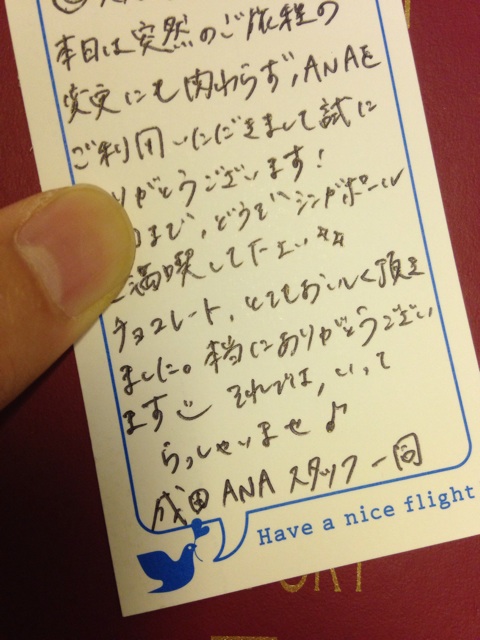 本日は突然のご旅程の
変更にも関わらず、ANAを
ご利用いただきまして誠に
りがとうございます!
まで、どうぞシンガポール
満喫して下さい☆☆
チョコレート、とてもおいしく頂き
ました。本当にありがとうござい
ます それでは、いって
らっしゃいませ♪
成田 ANA スタッフ一同
Have a nice flight